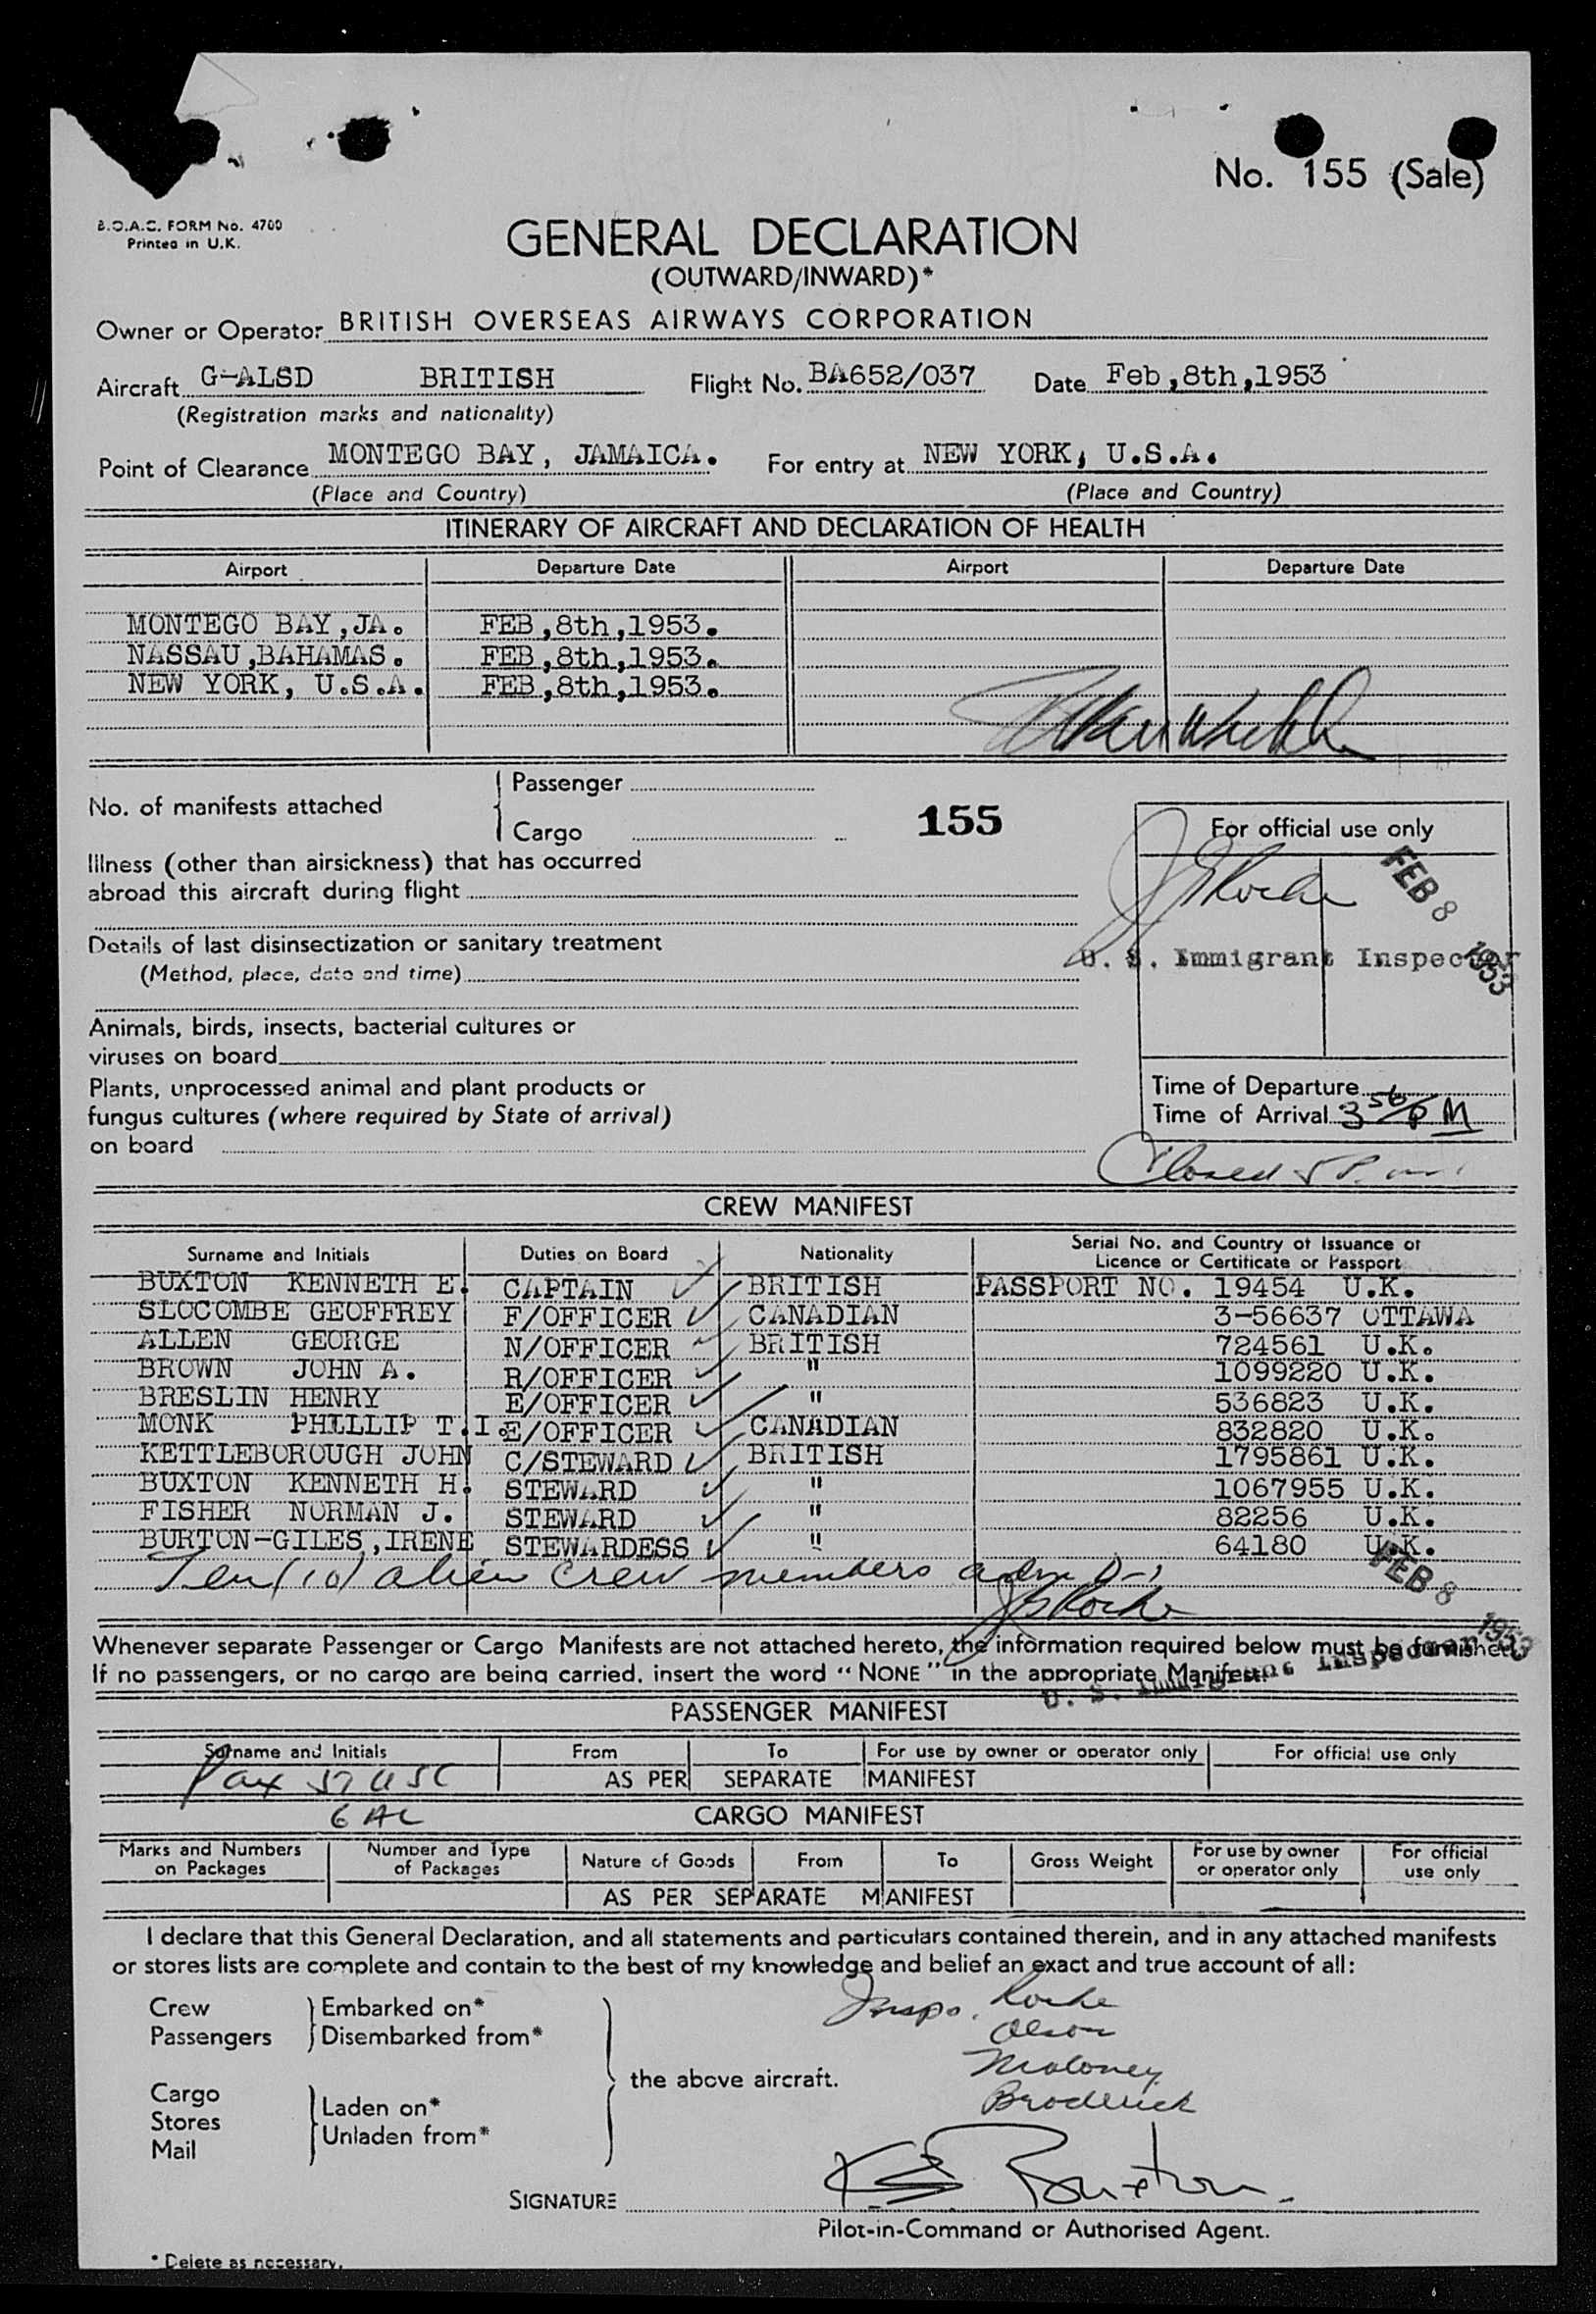 No. 155 (Sale)
B.O.A.C. FORM No. 4700
Printed in U.K.
GENERAL DECLARATION
(OUTWARD/INWARD)*
Owner or Operator BRITISH OVERSEAS AIRWAYS CORPORATION
Aircraft G-ALSD BRITISH Flight No. BA652/037 Date Feb,8th,1953
(Registration marks and nationality)
Point of Clearance MONTEGO BAY, JAMAICA. For entry at NEW YORK, U.S.A.
(Place and Country) (Place and Country)
ITINERARY OF AIRCRAFT AND DECLARATION OF HEALTH
Airport Departure Date Airport Departure Date
MONTEGO BAY,JA. FEB,8th,1953.
NASSAU,BAHAMAS. FEB,8th,1953.
NEW YORK, U.S.A. FEB,8th,1953.
No. of manifests attached { Passenger
Cargo
155
For official use only
Illness (other than airsickness) that has occurred
abroad this aircraft during flight
JSRoche FEB 8 1953
Details of last disinsectization or sanitary treatment
(Method, place, date and time)
U. S. Immigrant Inspector
Animals, birds, insects, bacterial cultures or
viruses on board
Plants, unprocessed animal and plant products or
fungus cultures (where required by State of arrival)
on board
Time of Departure
Time of Arrival 3 56/PM
Closed 5 P.m.
CREW MANIFEST
Surname and Initials Duties on Board Nationality Serial No. and Country of Issuance of
Licence or Certificate or Passport
BUXTON KENNETH E. CAPTAIN BRITISH PASSPORT NO. 19454 U.K.
SLOCOMBE GEOFFREY F/OFFICER CANADIAN 3-56637 OTTAWA
ALLEN GEORGE N/OFFICER BRITISH 724561 U.K.
BROWN JOHN A. R/OFFICER " 1099220 U.K.
BRESLIN HENRY E/OFFICER " 536823 U.K.
MONK PHILLIP T.I. E/OFFICER CANADIAN 832820 U.K.
KETTLEBOROUGH JOHN C/STEWARD BRITISH 1795861 U.K.
BUXTON KENNETH H. STEWARD " 1067955 U.K.
FISHER NORMAN J. STEWARD " 82256 U.K.
BURTON-GILES,IRENE STEWARDESS " 64180 U.K.
Ten (10) alien crew members adm D-1
JSRoche FEB 8 1953
Whenever separate Passenger or Cargo Manifests are not attached hereto, the information required below must be furnished.
If no passengers, or no cargo are being carried, insert the word "NONE" in the appropriate Manifest.
U. S. Immigrant Inspector
PASSENGER MANIFEST
Surname and Initials From To For use by owner or operator only For official use only
Pax 57 USC AS PER SEPARATE MANIFEST
6 AL
CARGO MANIFEST
Marks and Numbers on Packages Number and Type of Packages Nature of Goods From To Gross Weight For use by owner or operator only For official use only
AS PER SEPARATE MANIFEST
I declare that this General Declaration, and all statements and particulars contained therein, and in any attached manifests
or stores lists are complete and contain to the best of my knowledge and belief an exact and true account of all:
Crew } Embarked on*
Passengers } Disembarked from*
Insps. Roche
Olson
Maloney
Broderick
the above aircraft.
Cargo
Stores
Mail
Laden on*
Unladen from*
SIGNATURE KE Buxton.
Pilot-in-Command or Authorised Agent.
* Delete as necessary.